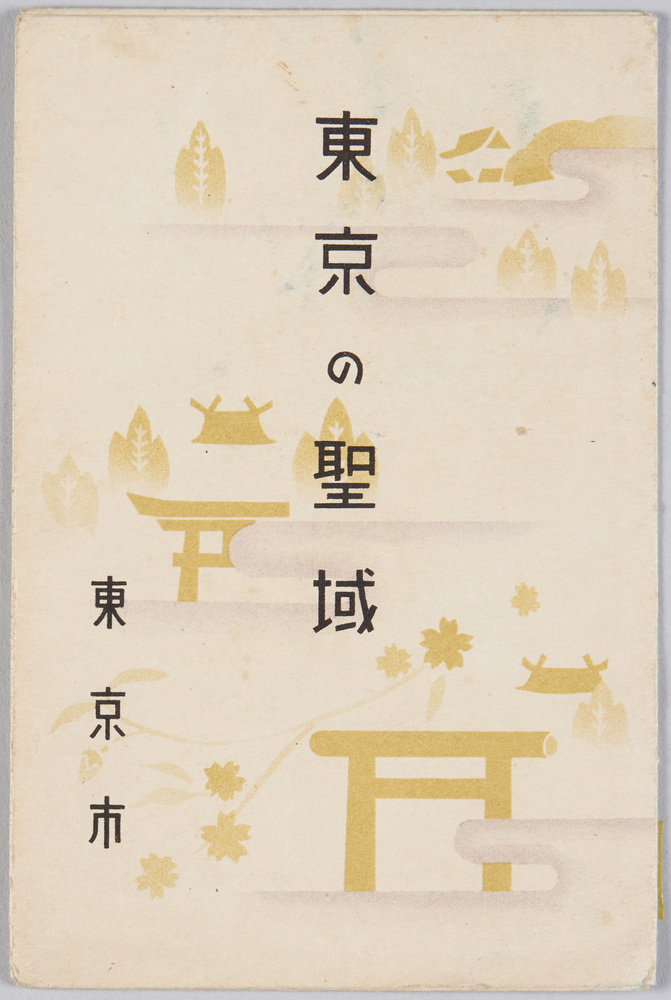 東京の聖域
東京市